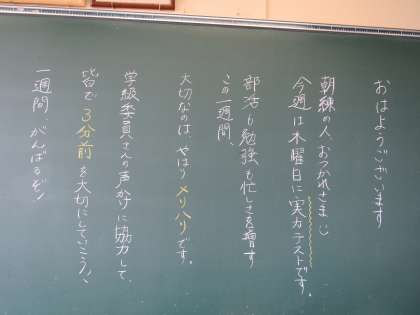 おはようございます
朝練の人、おつかれさま :)
今週は木曜日に実力テストです。
部活も勉強も忙しさを増す
この一週間、
大切なのは、やはりメリハリです。
学級委員さんの声かけに協力して、
皆で3分前を大切にしていこう！
一週間、がんばるぞ！